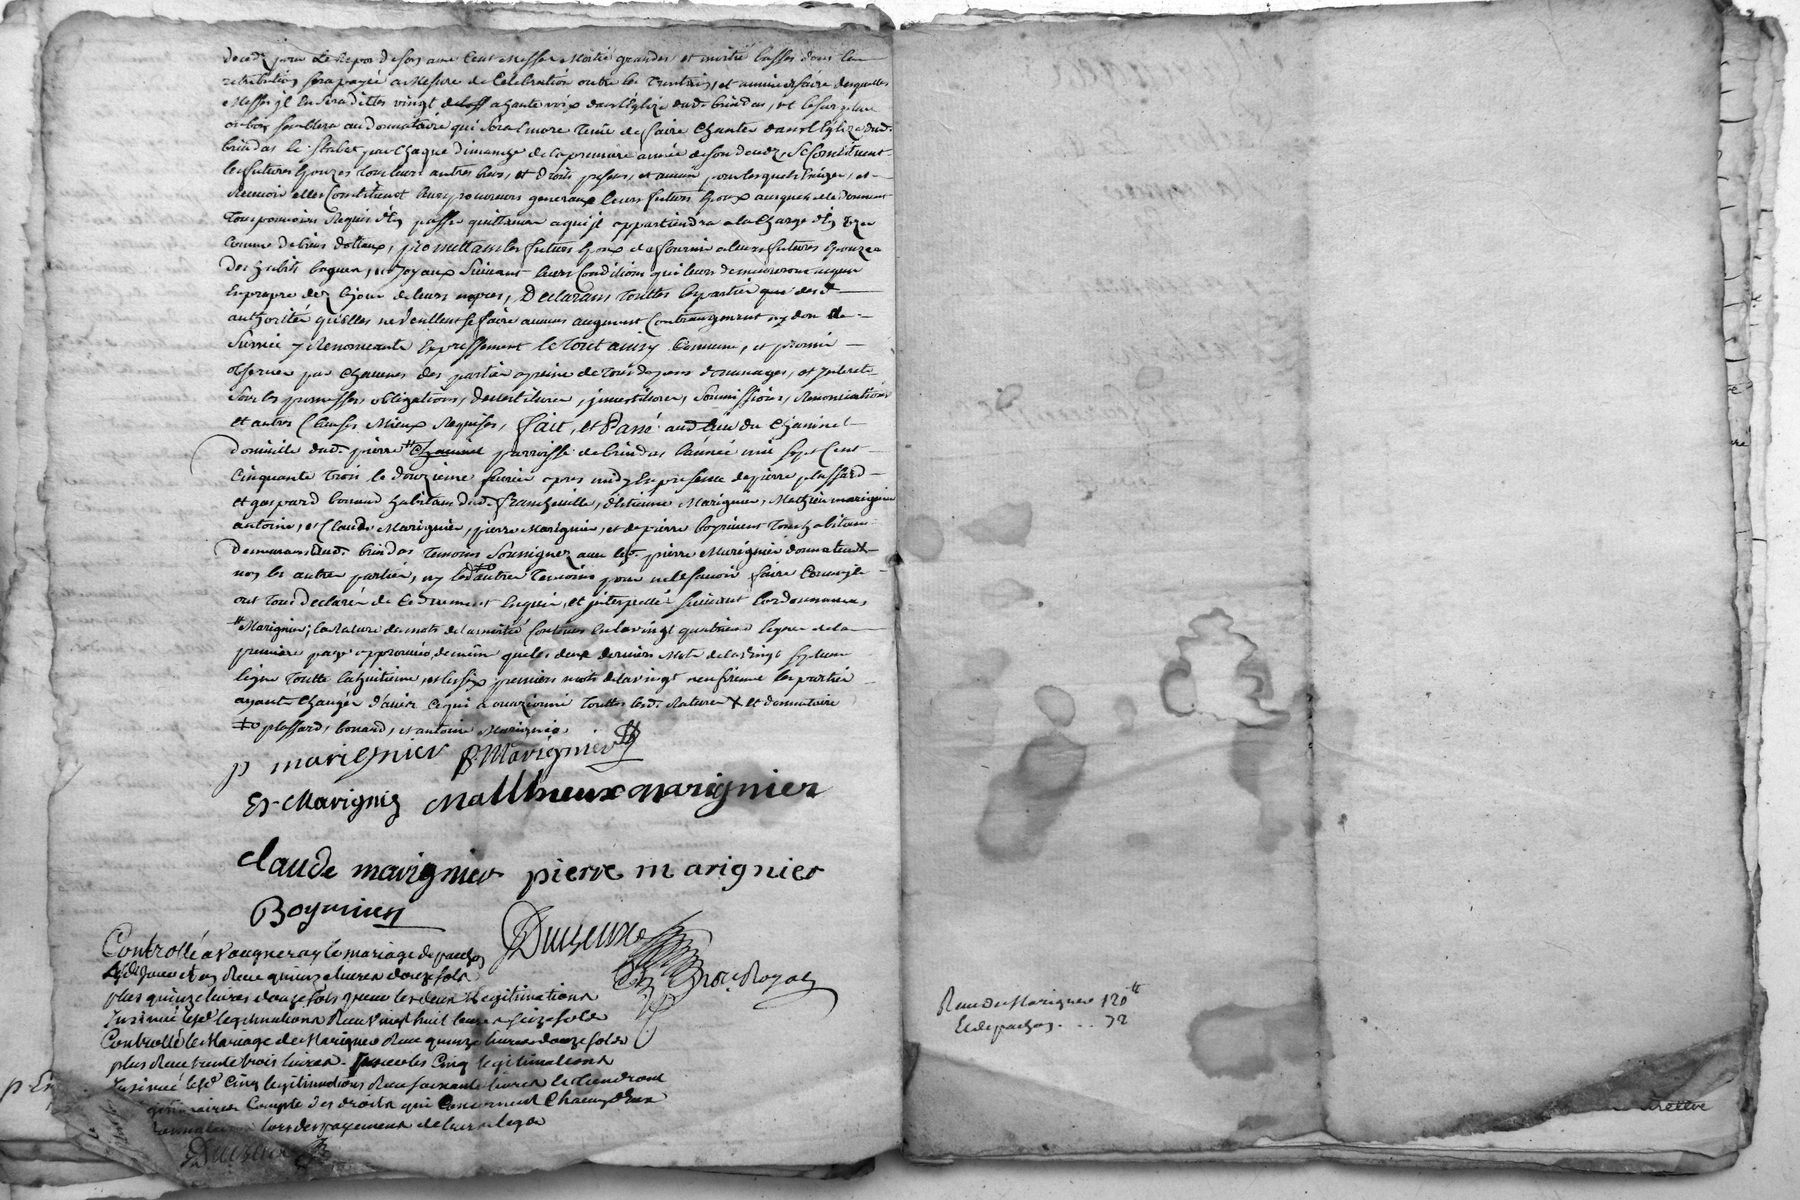 decedz jour de repos de son ame cent messes moitié grandes, et moitié basses dont la
retribution sera payée a mesure de celebration outre les trentains, et anniversaire desquelles
messes jl en sera dittes vingt a haute voix dans l'eglize dud. brindas, et le surplus
ou bon semblera au donnataire qui sera encore tenu de faire chanter dans l'Eglize dud.
brindas le stabat par chaque dimanche de la premiere année de son decedz, se Constituent
les futures epouzes tous leurs autres biens, et droits presens, et avenir pour lesquels exiger, et
recevoir elles Constituent leurs procureurs generaux leurs futurs epoux auxquels elle donnent
tous pouvoirs requis d'en passer quittance a qui jl appartiendra a la charge d'en user
comme de biens dottaux, promettans les futurs epoux de fournir a leurs futures epouzes
des habits bagues, et joyaux suivant leurs Conditions qui leurs demeureront acquis
En propre dez le jour de leurs nopces, Declarans touttes les parties que des d.
authorités qu'elles ne veullent se faire aucun augment Contraugment ny don de
survie y renonceants Expressement le tout ainsy convenu, et promis
observer par chacunes des parties a peine de tous depens dommages, et jnterets
sous les promesses, obligations, devestitures, jnvestitures, soumissions, renonciations
et autres Clauses mieux requises, fait, et Passé aud. lieu du chaninel
domicille dud. pierre # parroisse de brindas l'année mil sept Cent
cinquante trois le douzieme fevrier apres midy En presence de pierre plassard
et gaspard bonnard habitans dud. francheville, d'Estienne Marignier, Mathieu marignier
antoine, et Claude Marignier, pierre Marignier, et de pierre boyrivent tous habitans
demeurans aud. brindas temoins soussignez avec led. pierre Marignier donnateur
non les autres parties, ny lesd. autres temoins pour ne le sçavoir faire Comme jls
ont tous declaré de ce duement enquis, et jnterpellés suivant l'ordonnance,
# Marignier; la rature des mots de la moitié Contenus en la vingt quatrieme ligne de la
premiere page approuvée, de même que les deux derniers mots de la vingt septieme
ligne toutte la huitieme, et les six premiers mots de la vingt neufvieme les parties
ayants changés d'avis ce qui a occazionné touttes lesd. ratures & et donnataire
plassard, bonnard, et antoine Marignier
p marignier P. Marignier
Et Marignier Matthieux marignier
claude marignier pierre marignier
Boyrivent
Duizeux
Controllé a Vaugneray le mariage de
reçu quinze livres douze sols
plus quinze livres douze sols pour les deux Legitimations
Insinué lesd. legitimations Reçu vingt huit livres seize sols
Controllé le Mariage de Marignier Reçu quinze livres douze sols
plus Reçu trente trois livres pour les Cinq legitimations
Insinué lesd. Cinq legitimations Reçu soixante livres
Compte des droits qui Concernent Chacun d'eux
lors des payements de leurs legs
Reçu de Marignier 120 tt
Et de pachon . . . 72